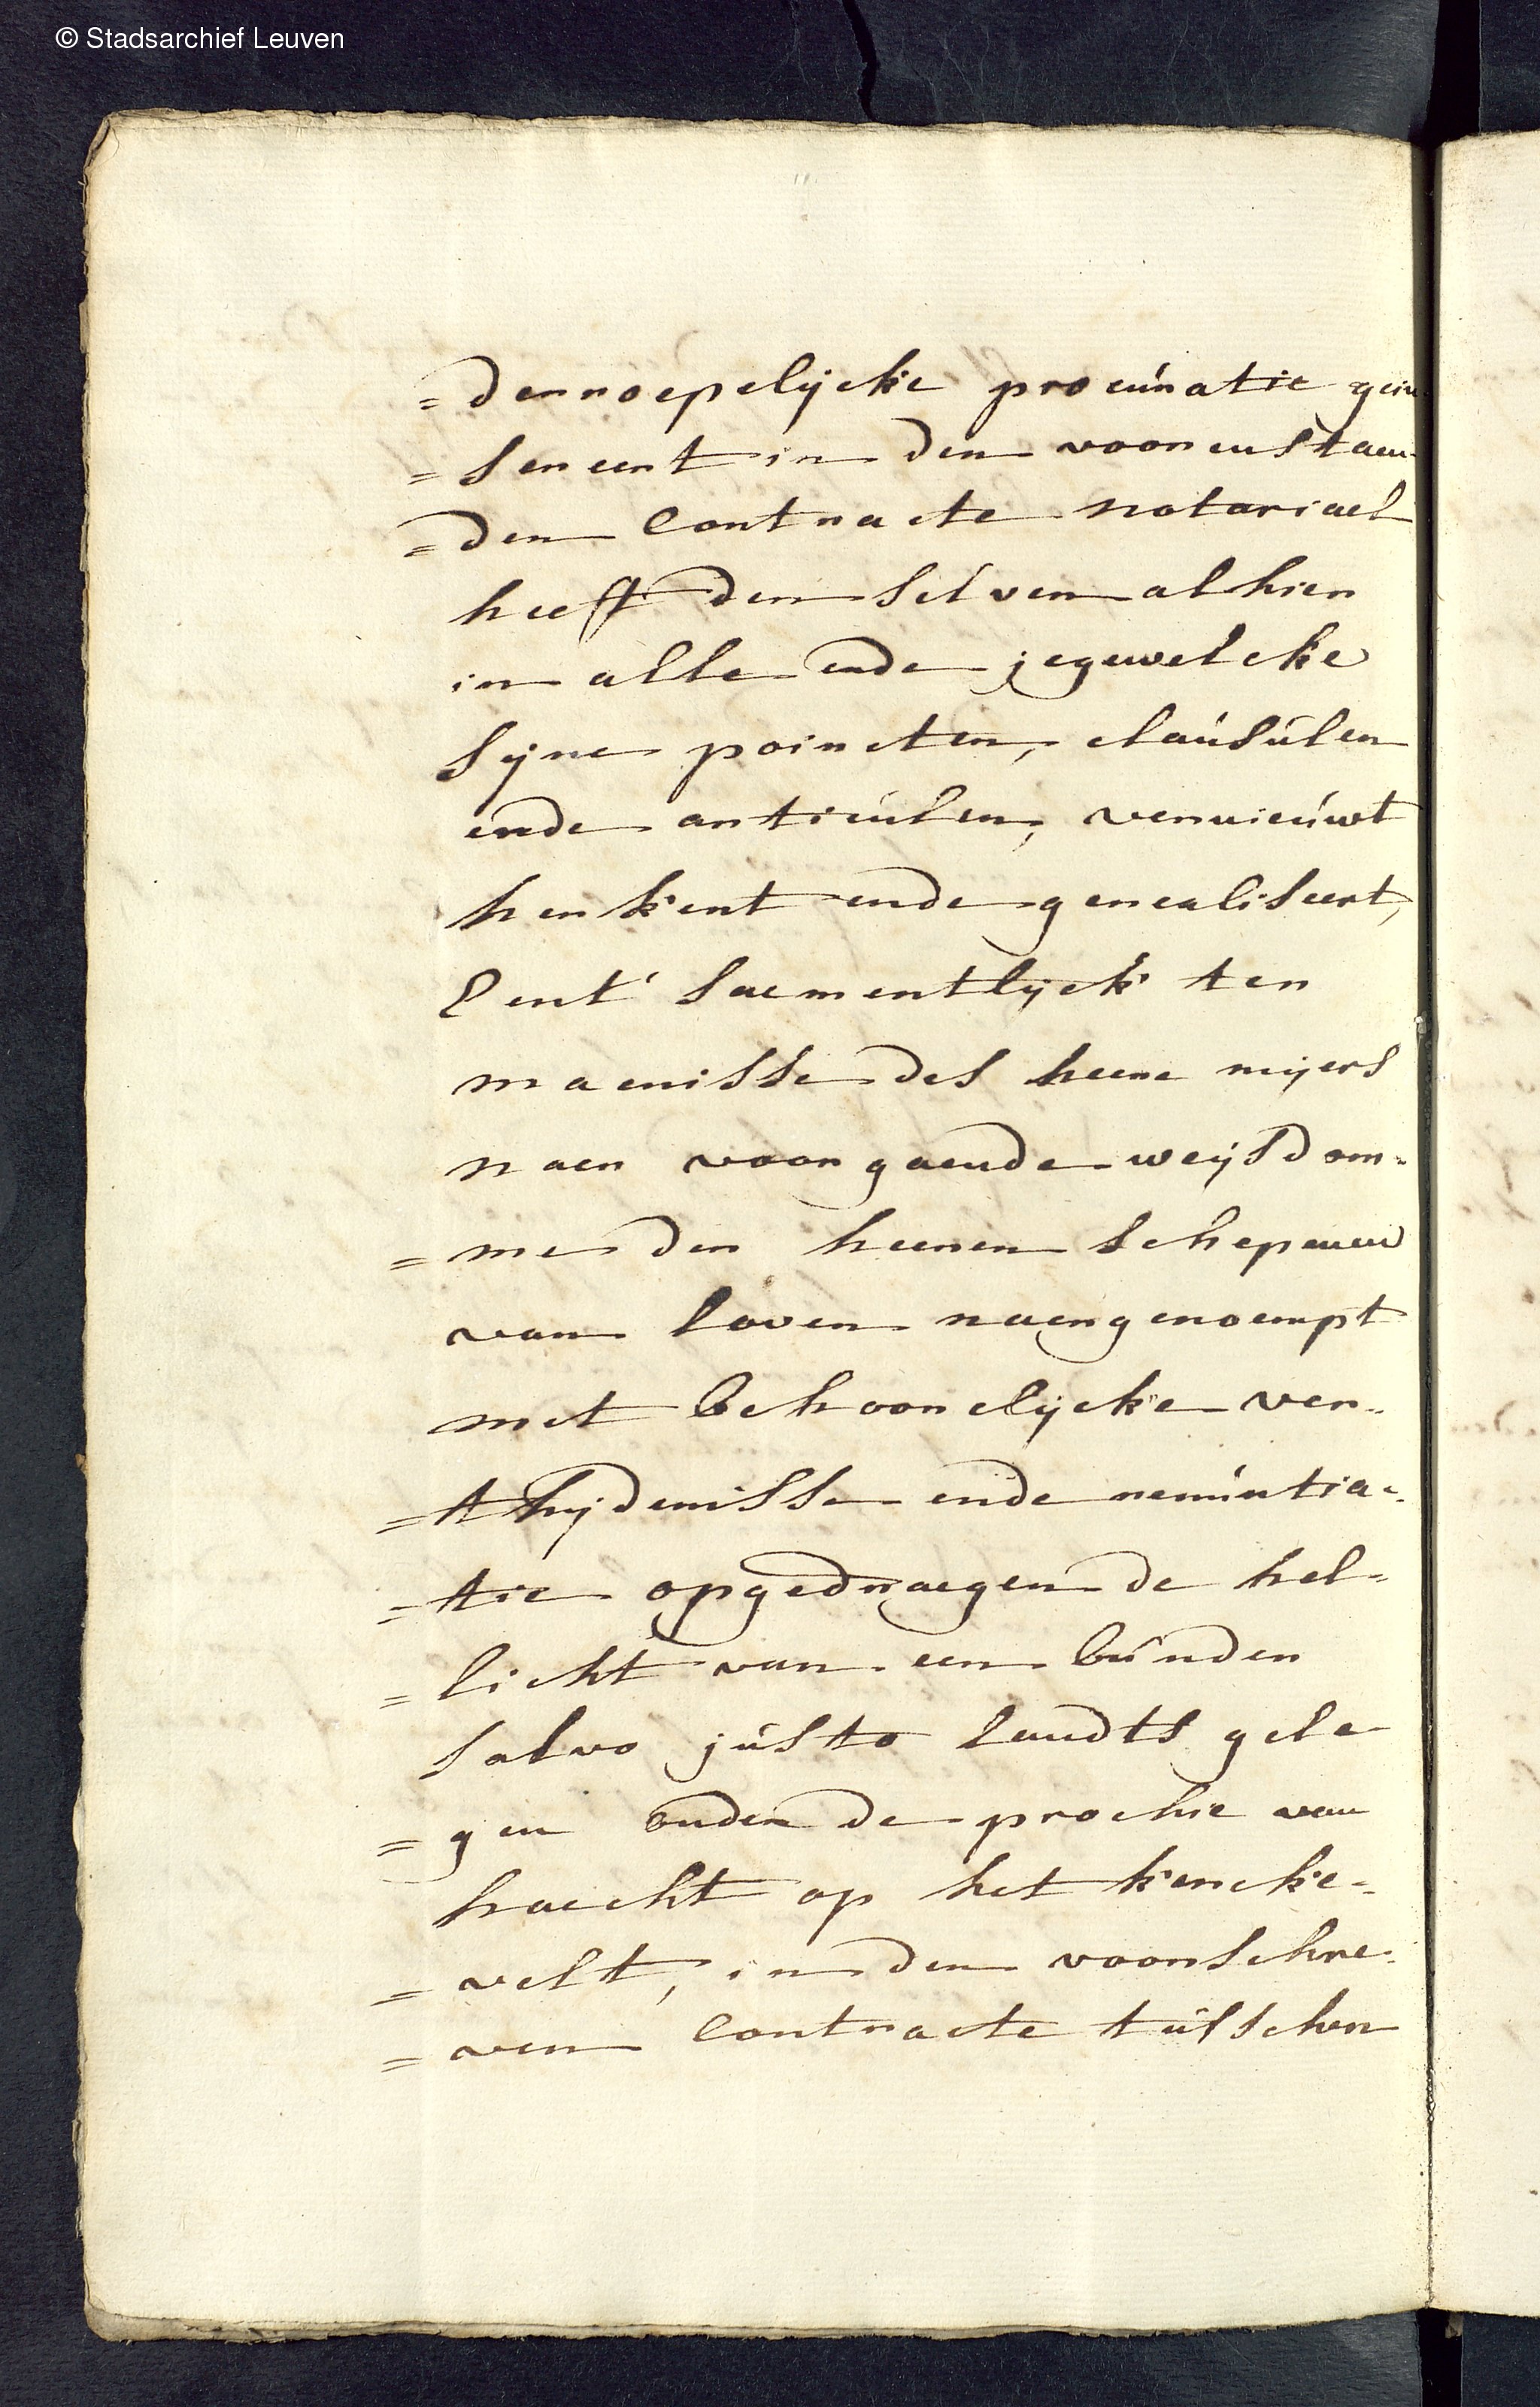 © Stadsarchief Leuven
= derroepelijcke procúratie gein
= sereert in den voorenstaen-
= den Contracte notariael
heeft den selven alhier
in alle ende jegewelcke
sijne poincten, claúsúlen
ende articúlen, vernieúwt
herkent ende gerealiseert,
Ent' saementlijck ten
maenisse des heere meijers
naer voorgaende weijsdom-
= me der heeren schepenen
van loven naergenoempt
met behoorelijcke ver-
= thijdenisse ende renúntia-
= tie opgedraegen de hel-
= licht van een búnder
salvo jústo landts gele
= gen onder de prochie van
haecht op het kercke-
= velt, in den voorschre-
= ven Contracte tússchen